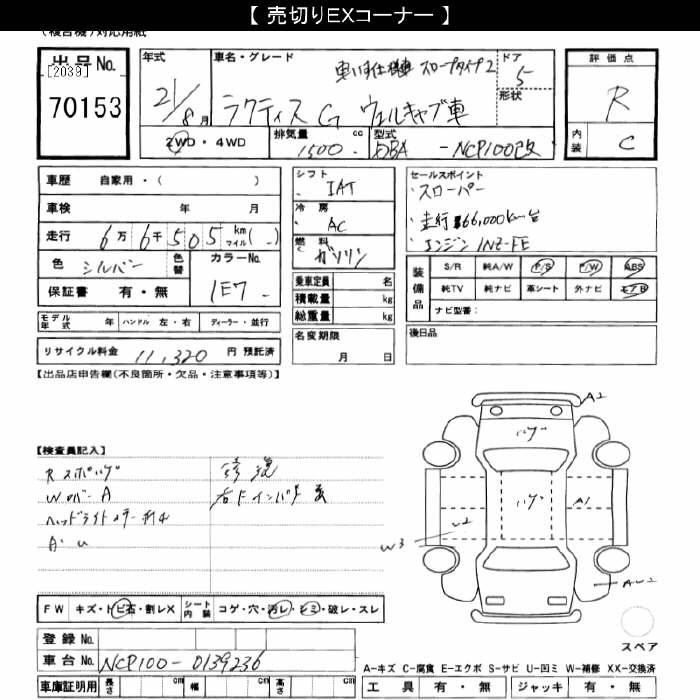 【 売切りEXコーナー 】
(複合機)対応用紙
出品No.
[2039]
70153
年式
21/8月
車名・グレード
車いす仕様車 スロープタイプ2
ラクティス G ウェルキャブ車
ドア
5
形状
評価点
R
内装
C
2WD・4WD
排気量 cc
1500
型式
DBA - NCP100改
車歴 自家用・( )
車検 年 月
走行 6万 6千 505 km マイル( )
色 シルバー 色替 カラーNo.
1E7
保証書 有・無
モデル年式 年 ハンドル 左・右 ディーラー・並行
リサイクル料金 11,320 円 預託済
シフト
IAT
冷房
AC
燃料
ガソリン
乗車定員 名
積載量 kg
総重量 kg
名変期限
月 日
セールスポイント
・スローパー
・走行 66,000km台
・エンジン 1NZ-FE
装備品
S/R 純A/W P/S P/W ABS
純TV 純ナビ 革シート 外ナビ エアB
ナビ型番:
後日品
【出品店申告欄(不良箇所・欠品・注意事項等)】
【検査員記入】
Rスポハゲ
A・U
修復
ハゲ
ハゲ
A2
A1
U2
W3
AU2
FW キズ・トビ石・割レX シート内装 コゲ・穴・汚レ・シミ・破レ・スレ
登録 No.
車台 No. NCP100-0139236
車庫証明用 長さ cm 幅 cm 高さ cm
スペア
A-キズ C-腐食 E-エクボ S-サビ U-凹ミ W-補修 XX-交換済
工具 有・無 ジャッキ 有・無